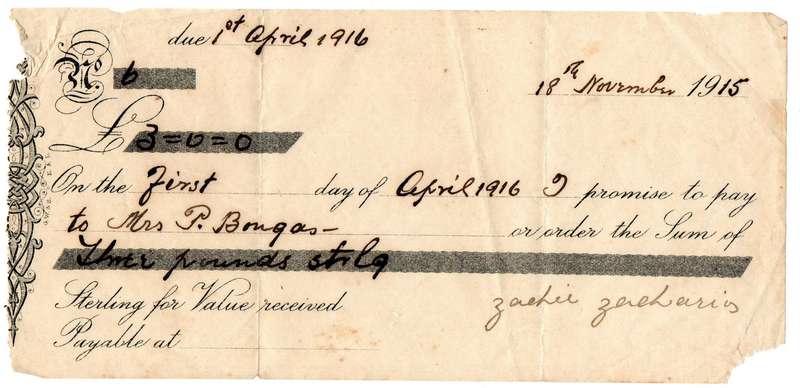 due 1st April 1916
No. 6
18th November 1915
£ 3=0=0
On the First day of April 1916 I promise to pay
to Mrs P. Bougas or order the Sum of
Three pounds strlg
Sterling for Value received
zachie zacharias
Payable at